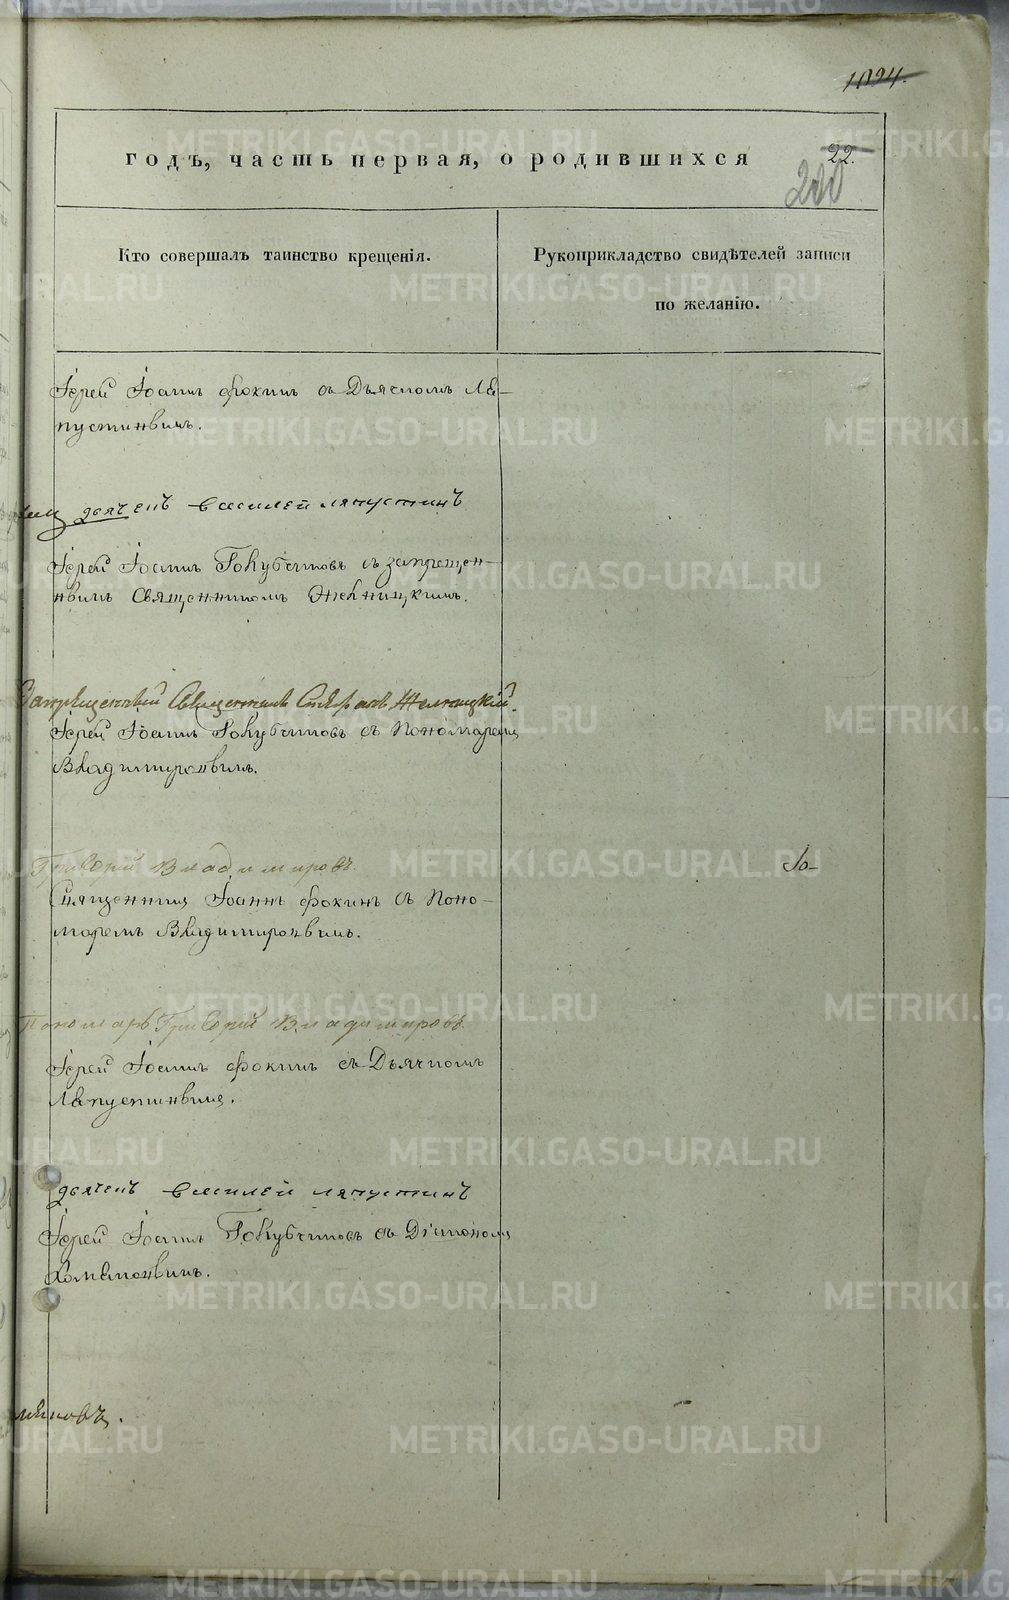 1024.
годъ, часть первая, о родившихся
22.
200
Кто совершалъ таинство крещенія.
Рукоприкладство свидѣтелей записи
по желанію.
Іерей Іоаннъ Фокинъ съ Дьячкомъ Ля-
пустинымъ.
дьячекъ василей ляпустинъ
Іерей Іоаннъ Голубчиковъ съ запрещен-
нымъ Священникомъ
Запрещенный Священникъ Стефанъ
Іерей Іоаннъ Голубчиковъ съ Пономаремъ
Владимировымъ.
Григорій Владимировъ
Священникъ Іоаннъ Фокинъ съ Поно-
маремъ Владимировымъ.
Пономарь Григорій Владимировъ
Іерей Іоаннъ Фокинъ съ Дьячкомъ
Ляпустинымъ.
дьячекъ василей ляпустинъ
Іерей Іоаннъ Голубчиковъ съ Діакономъ
Хомяковымъ.
METRIKI.GASO-URAL.RU